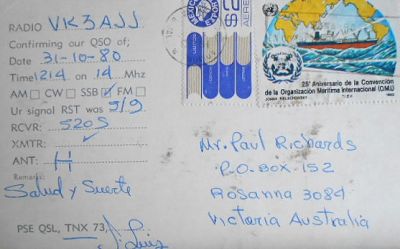 RADIO VK3AJJ
Confirming our QSO of;
Date 31-10-80
Time 1214 on 14 Mhz
AM CW SSB FM
Ur signal RST was 5/9
RCVR: 520S
XMTR:
ANT: H
Remarks:
Salud y Suerte
PSE QSL, TNX 73,
Luis
AEREO
25 Aniversario de la Convención
de la Organización Marítima Internacional (O.M.I.)
Mr. Paul Richards
P.O. BOX-152
Rosanna 3084
Victoria Australia